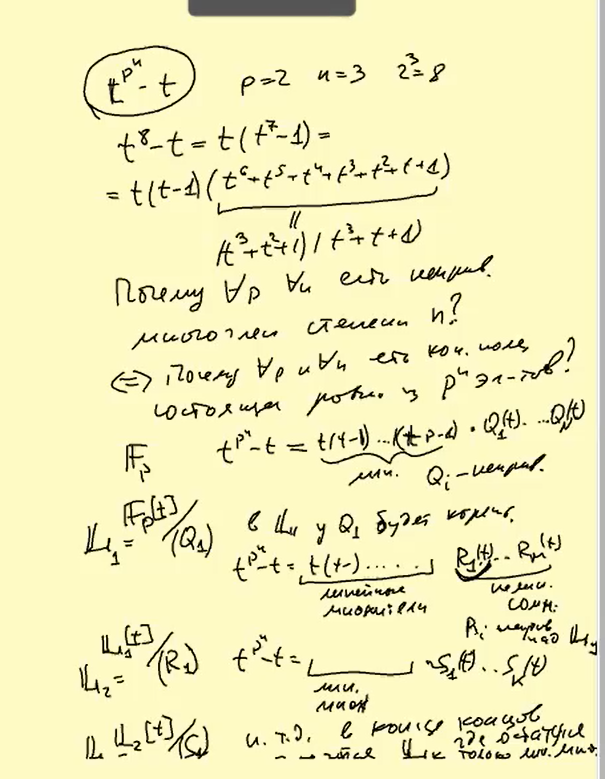 t^{p^n} - t   p=2   n=3   2^3=8
t^8 - t = t(t^7 - 1) =
= t(t-1)(t^6+t^5+t^4+t^3+t^2+t+1)
||
(t^3+t^2+1)(t^3+t+1)
Почему ∀p ∀n есть неприв.
многочлен степени n?
⇔ Почему ∀p и ∀n есть кон. поле,
состоящее ровно из p^n эл-тов?
F_p   t^{p^n} - t = t(t-1)...(t-p-1) · Q_1(t). ...Q_N(t)
лин.   Q_i - неприв.
𝕃_1 = F_p[t]/(Q_1)   в 𝕃_1 у Q_1 будет корень.
t^{p^n} - t = t(t-)......   R_1(t)...R_M(t)
линейные множители   нелин. сомн.
R_i неприв над 𝕃_1
𝕃_2 = 𝕃_1[t]/(R_1)   t^{p^n} - t =   · S_1(t)..S_k(t)
лин.
множ
𝕃_2[t]/(S_1)   и.т.д. в конце концов
𝕃_k где остаются только лин. мн.